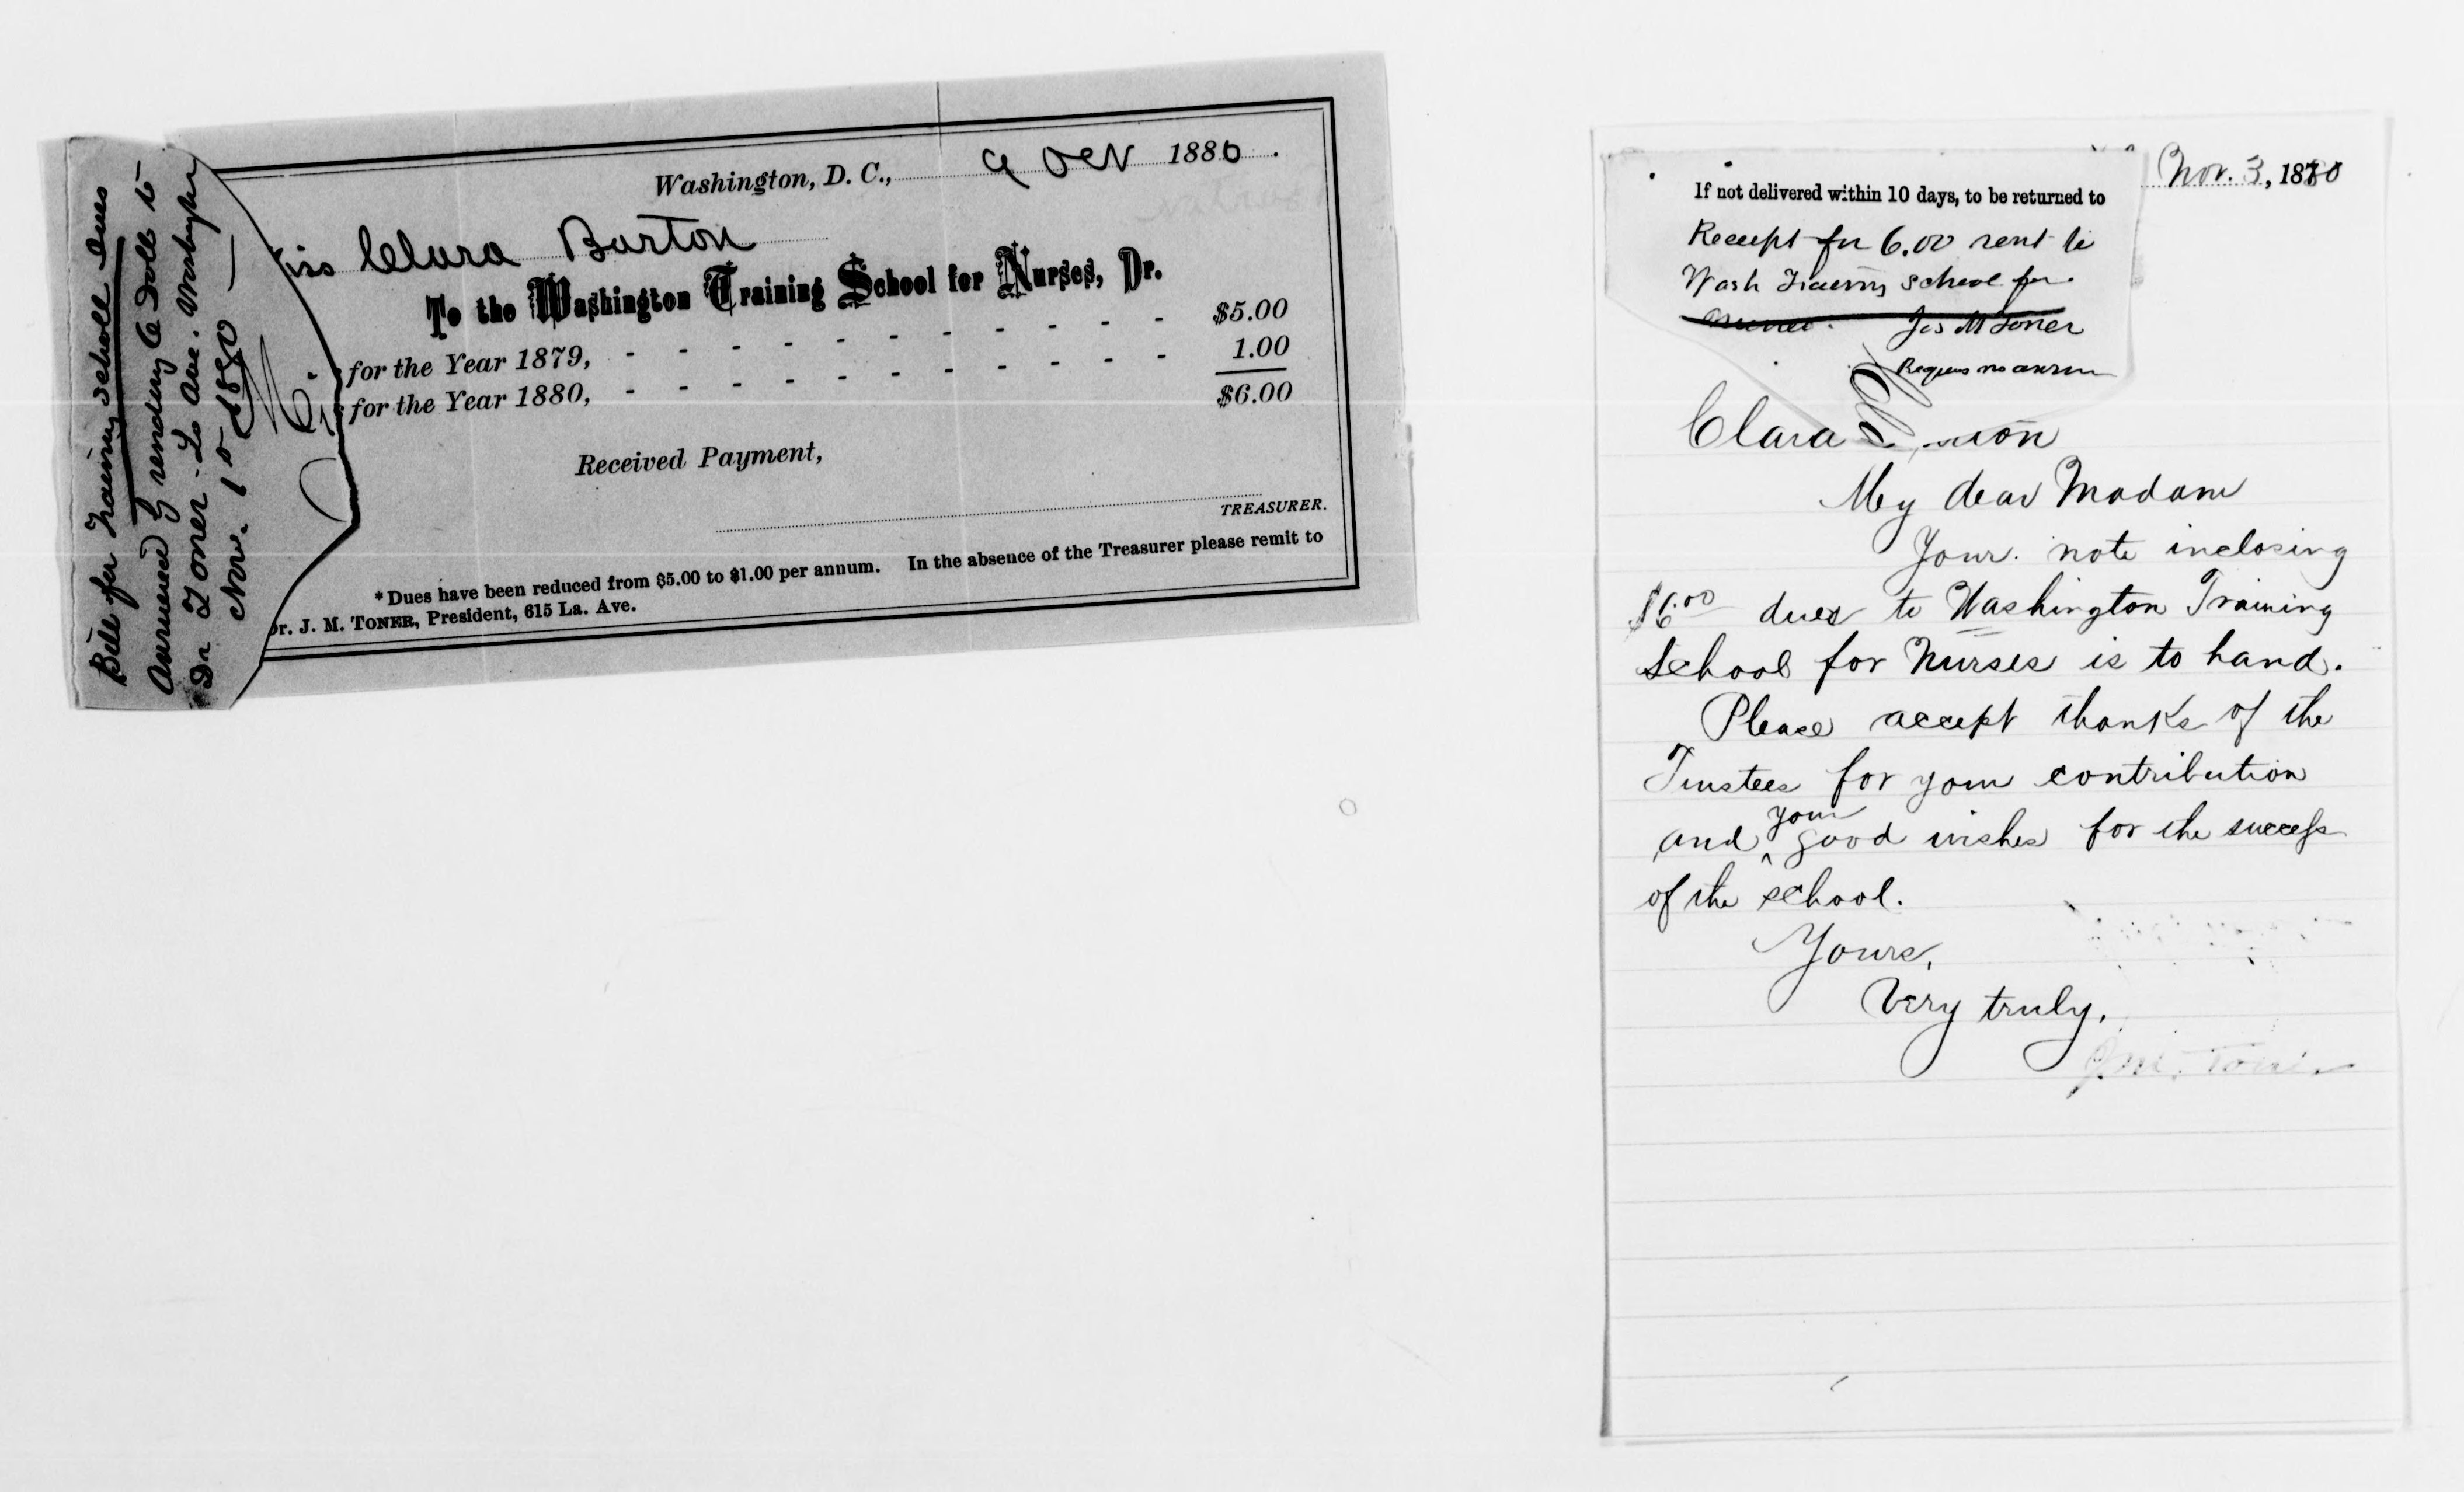 Bill for Training scholl dues
Answered by sending 6 Doll to
Dr Toner - La Ave. Washington
Nov. 1st 1880
Washington, D. C., 9 Oct 1880.
iss Clara Barton
To the Washington Training School for Nurses, Dr.
for the Year 1879, - - - - - - - - - - - $5.00
for the Year 1880, - - - - - - - - - - - 1.00
$6.00
Received Payment,
TREASURER.
*Dues have been reduced from $5.00 to $1.00 per annum. In the absence of the Treasurer please remit to
Dr. J. M. TONER, President, 615 La. Ave.
Nov. 3, 1880
If not delivered within 10 days, to be returned to
Receipt for 6.00 sent to
Wash Training School for
Jos M Toner
Requires no answer
Clara
My dear Madam
Your note inclosing
$6.00 dues to Washington Training
School for Nurses is to hand.
Please accept thanks of the
Trustees for your contribution
and your good wishes for the success
of the school.
Yours,
Very truly,
J. M. Toner